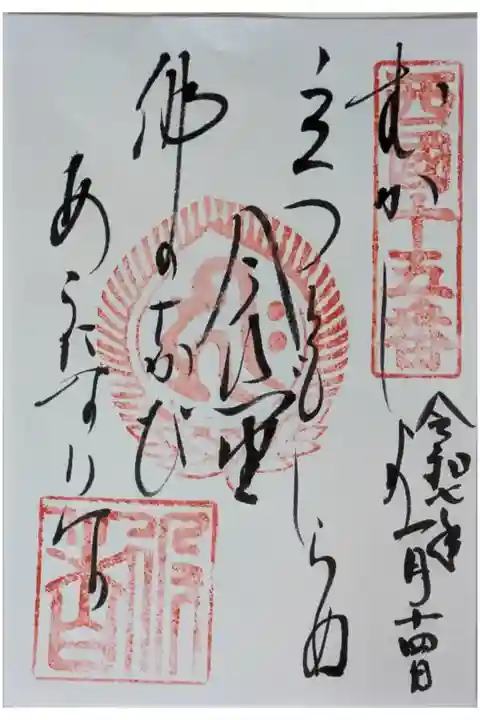 西國十五番
むかしより
立つともしらぬ
今くま野
佛のちかひ
あらたなりけり
令和七年一月十四日